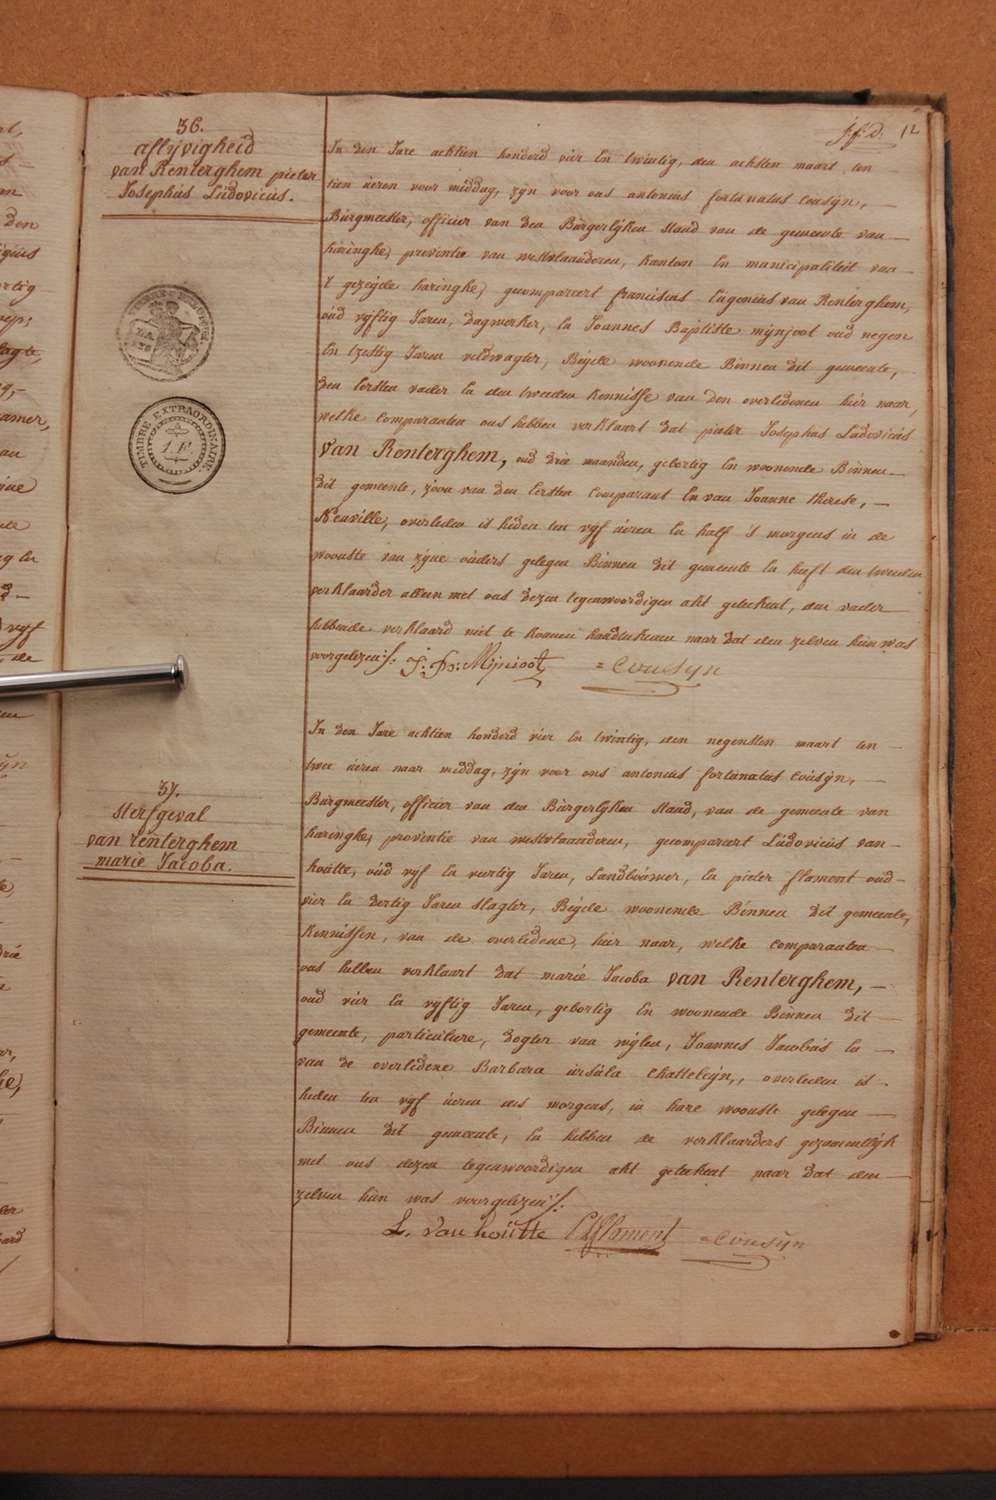 36.
aflijvigheid
van Renterghem pieter
Josephus Ludovicus.
12
TIMBRE EXTRAORDINAIRE
1. F.
In den Jare achtien honderd vier En twintig, den achsten maart ten
tien uren voor middag, zijn voor ons antonius fortunatus Cousijn,
Burgmeester, officier van den Burgerlijken staad van de gemeente van
haringhe, proventie van westvlaanderen, kanton En municipaliteit van
't gezeijde haringhe, gecompareert franciscus Eugenius van Renterghem,
oud vijftig Jaren, dagwerker, En Joannes Baptiste mijnjoot oud negen
En tzestig Jaren veldwagter, Beijde woonende Binnen dit gemeente,
den Eersten vader En den tweeden kennisse van den overledenen hier naar,
welke comparanten ons hebben verklaart dat pieter Josephus Ludovicus
Van Renterghem, oud drie maanden, gebortig En woonende Binnen
dit gemeente, zoon van den Eersten Comparant En van Joanne therese,
Neuville, overleden is heden ten vijf uren En half 's morgens in de
wooniste van zijne ouders gelegen Binnen dit gemeente En heeft den tweeden
verklaarder alleen met ons dezen tegenwoordigen akt geteekent, den vader
hebbende verklaard niet te konnen handteekenen naar dat den zelven hun was
voorgelezen. J. B. Mijnjoot = Cousijn
37.
sterfgeval
van renterghem
marie Jacoba.
In den Jare achtien honderd vier En twintig, den negensten maart ten
twee uren naar middag, zijn voor ons antonius fortunatus Cousijn,
Burgmeester, officier van den Burgerlijken staad, van de gemeente van
haringhe, proventie van westvlaanderen, gecompareert Ludovicus van
houtte, oud vijf En veertig Jaren, Landbouwer, En pieter flament oud
vier En dertig Jaren slagter, Beijde woonende Binnen dit gemeente,
Kennissen, van de overledene, hier naar, welke comparanten
ons hebben verklaart dat marie Jacoba van Renterghem,
oud vier En vijftig Jaren, gebortig En woonende Binnen dit
gemeente, particuliere, dogter van wijlen, Joannes Jacobus En
van de overledene Barbara ursula Chatteleijn,, overleden is
heden ten vijf uren des morgens, in hare wooniste gelegen
Binnen dit gemeente, En hebben de verklaarders gezamentlijk
met ons dezen tegenwoordigen akt geteekent naar dat den
zelven hun was voorgelezen.
L. Van houtte P flament = Cousijn